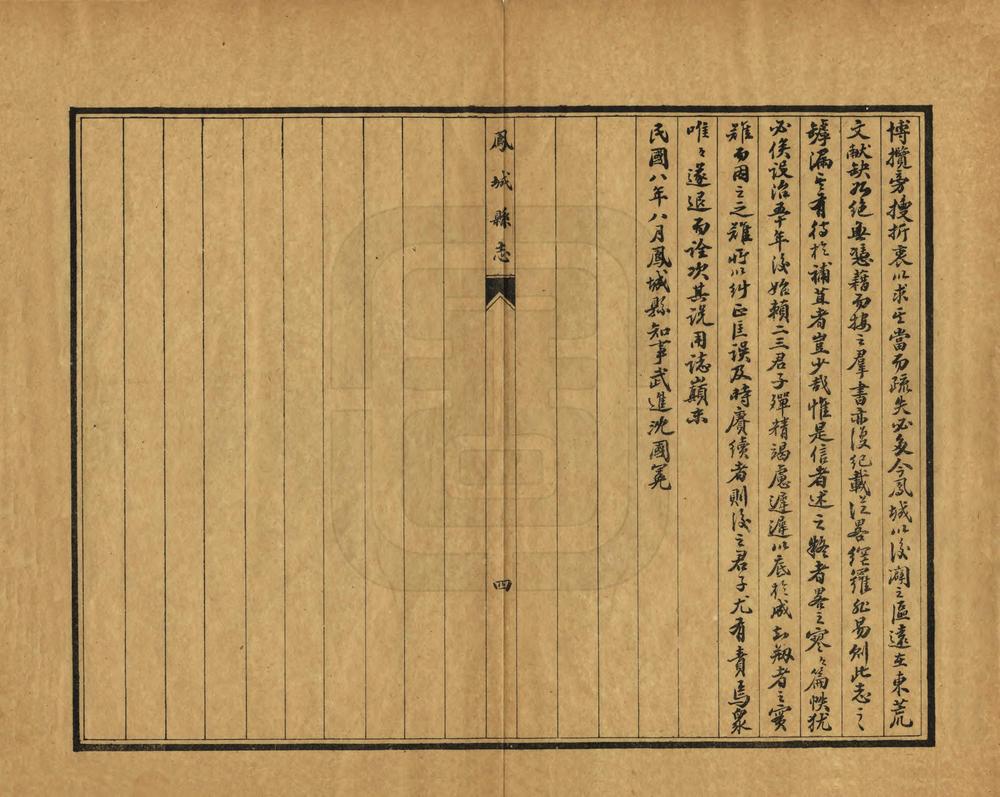 博攬旁搜折衷以求其當而疏失必多今鳳城以後闢之區遠在東荒
文献缺如絕無憑藉而搜之羣書亦復紀載從畧網羅非易則此志之
罅漏其有待於補苴者豈少哉惟是信者述之疑者畧之寥々篇帙犹
必俟設治五十年後始賴二三君子殫精竭慮遲遲以底於成知剏者之實
難而因之之難所以糾正匡误及時賡續者則後之君子尤有責焉众
唯々遂退而诠次其说用誌巔末
民國八年八月鳳城縣知事武進沈國冕
鳳城縣志
四